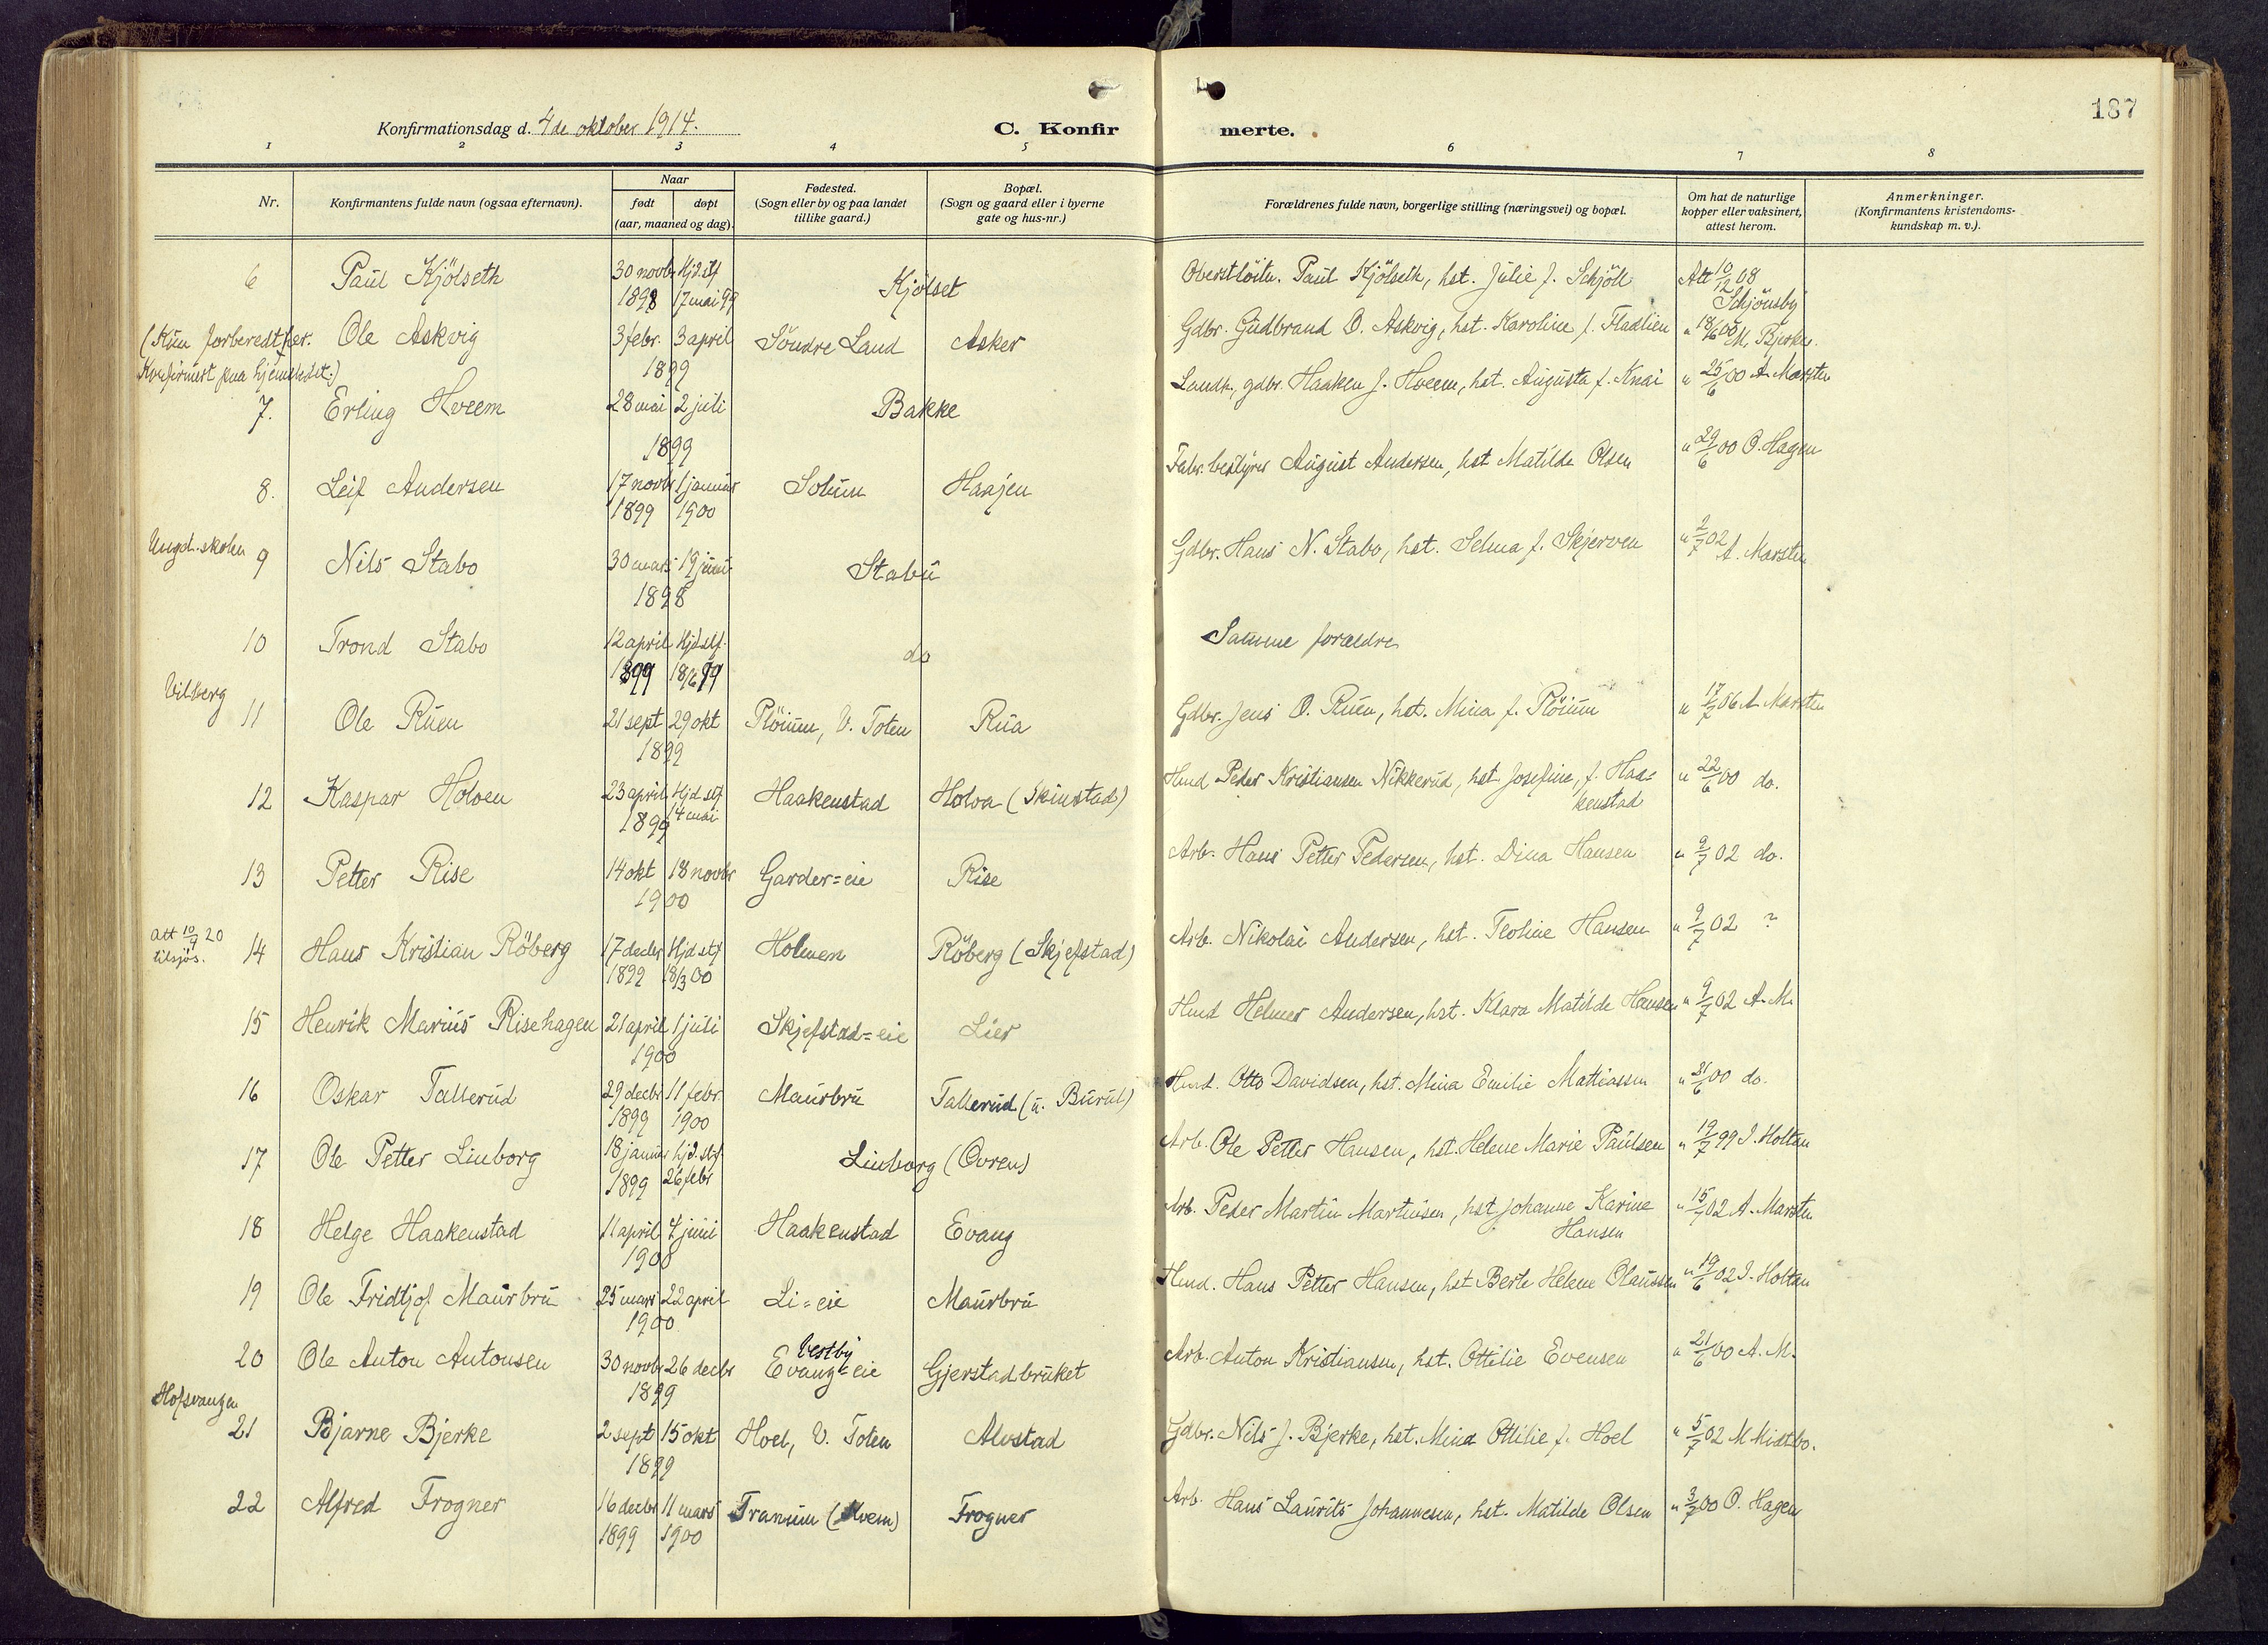 187
Konfirmationsdag d. 4de oktober 1914. C. Konfirmerte.
1 2 3 4 5 6 7 8
Nr. Konfirmantens fulde navn (ogsaa efternavn). Naar født døpt (aar, maaned og dag). Fødested. (Sogn eller by og paa landet tillike gaard.) Bopæl. (Sogn og gaard eller i byerne gate og hus-nr.) Forældrenes fulde navn, borgerlige stilling (næringsvei) og bopæl. Om hat de naturlige kopper eller vaksinert, attest herom. Anmerkninger. (Konfirmantens kristendomskundskap m. v.).
6 Paul Kjölseth 30 novb 1898 Hjd. stf 17 mai 99 Kjölset Oberstlöitn. Paul Kjölseth, hst. Julie f. Schjöll Att 10/12 08 Schjönsby
(Kun forberedt her. Konfirmert paa hjemstedet.) Ole Askvig 3 febr. 3 april 1899 Söndre Land Asker Gdbr. Gudbrand O. Askvig, hst. Karoline f. Fladlien " 18/6 08 M. Bjerke.
7. Erling Hveem 28 mai 2 juli 1899 Bakke Landh., gdbr. Haaken J. Hveem, hst. Augusta f. Knai " 25/6 00 A. Marsten
8. Leif Andersen 17 novbr 1899 1 januar 1900 Solum Haajen Fabr. bestyrer August Andersen, hst Matilde Olsen " 29/6 00 O. Hagen
Ungd. skolen 9 Nils Stabo 30 mars 19 juni 1898 Stabu Gdbr. Hans N. Stabo, hst. Selma f. Skjerven " 2/7 02 A. Marsten
10 Trond Stabo 12 april 1899 Hjd stf. 18/6 99 do Samme forældre
Vilberg 11 Ole Ruen 21 sept 29 okt 1899 Plöium, V. Toten Rua Gdbr. Jens O. Ruen, hst. Mina f. Plöium " 17/7 06 A Marsten
12 Kaspar Holoen 23 april 1899 Hjd stf 14 mai Haakenstad Holoa (Skinstad) Hmd Peder Kristiansen Nikkerud, hst. Josefine, f. Haakenstad " 22/6 00 do.
13 Petter Rise 14 okt 18 novbr 1900 Garder=eie Rise Arb. Hans Petter Pedersen, hst. Dina Hansen " 9/7 02 do.
Att 10/9 20 tilsjøs. 14 Hans Kristian Röberg 17 decbr 1899 Hjd stf 18/3 00 Holmen Röberg (Skjefstad) Arb. Nikolai Andersen, hst. Teoline Hansen " 9/7 02 ?
15 Henrik Marius Risehagen 21 april 1 juli 1900 Skjefstad=eie Lier Hmd Helmer Andersen, hst. Klara Matilde Hansen " 9/7 02 A. M.
16 Oskar Tallerud 29 decbr 1899 11 febr. 1900 Maurbru Tallerud (u. Burul) Hmd. Otto Davidsen, hst. Mina Emilie Matiassen " 21/6 00 do.
17 Ole Petter Linborg 18 januar 1899 hjd. stf. 26 febr Linborg (Ovren) Arb. Ole Petter Hansen, hst. Helene Marie Paulsen " 19/7 99 I. Holtan
18 Helge Haakenstad 11 april 4 juni 1900 Haakenstad Evang Arb. Peder Martin Martinsen, hst Johanne Karine Hansen " 15/7 02 A. Marsten
19 Ole Fridtjof Maurbru 25 mars 22 april 1900 Li=eie Maurbru Hmd. Hans Petter Hansen, hst Berte Helene Olaussen " 19/6 02 I. Holtan
20 Ole Anton Antonsen 30 novb 26 decbr 1899 Vestby Evang=eie Gjerstadbruket Arb. Anton Kristiansen, hst. Ottilie Evensen " 21/6 00 A. M.
Hofsvangen 21 Bjarne Bjerke 2 sept 15 okt 1899 Hoel, V. Toten Alvstad Gdbr. Nils J. Bjerke, hst. Mina Ottilie f. Hoel " 5/7 02 M Mistbo.
22 Alfred Frogner 16 decbr 1899 11 mars 1900 Tranum (Hvem) Frogner Arb. Hans Laurits Johannesen, hst. Matilde Olsen " 3/7 00 O. Hagen